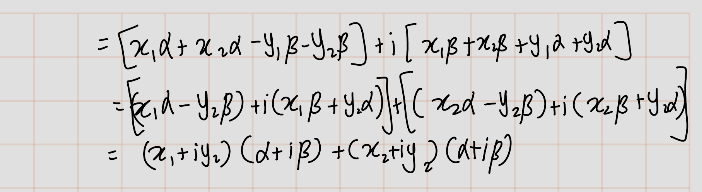 = [x₁α + x₂α - y₁β - y₂β] + i [x₁β + x₂β + y₁α + y₂α]
= [(x₁α - y₂β) + i(x₁β + y₂α)] + [(x₂α - y₂β) + i(x₂β + y₂α)]
= (x₁ + iy₂) (α + iβ) + (x₂ + iy₂) (α + iβ)